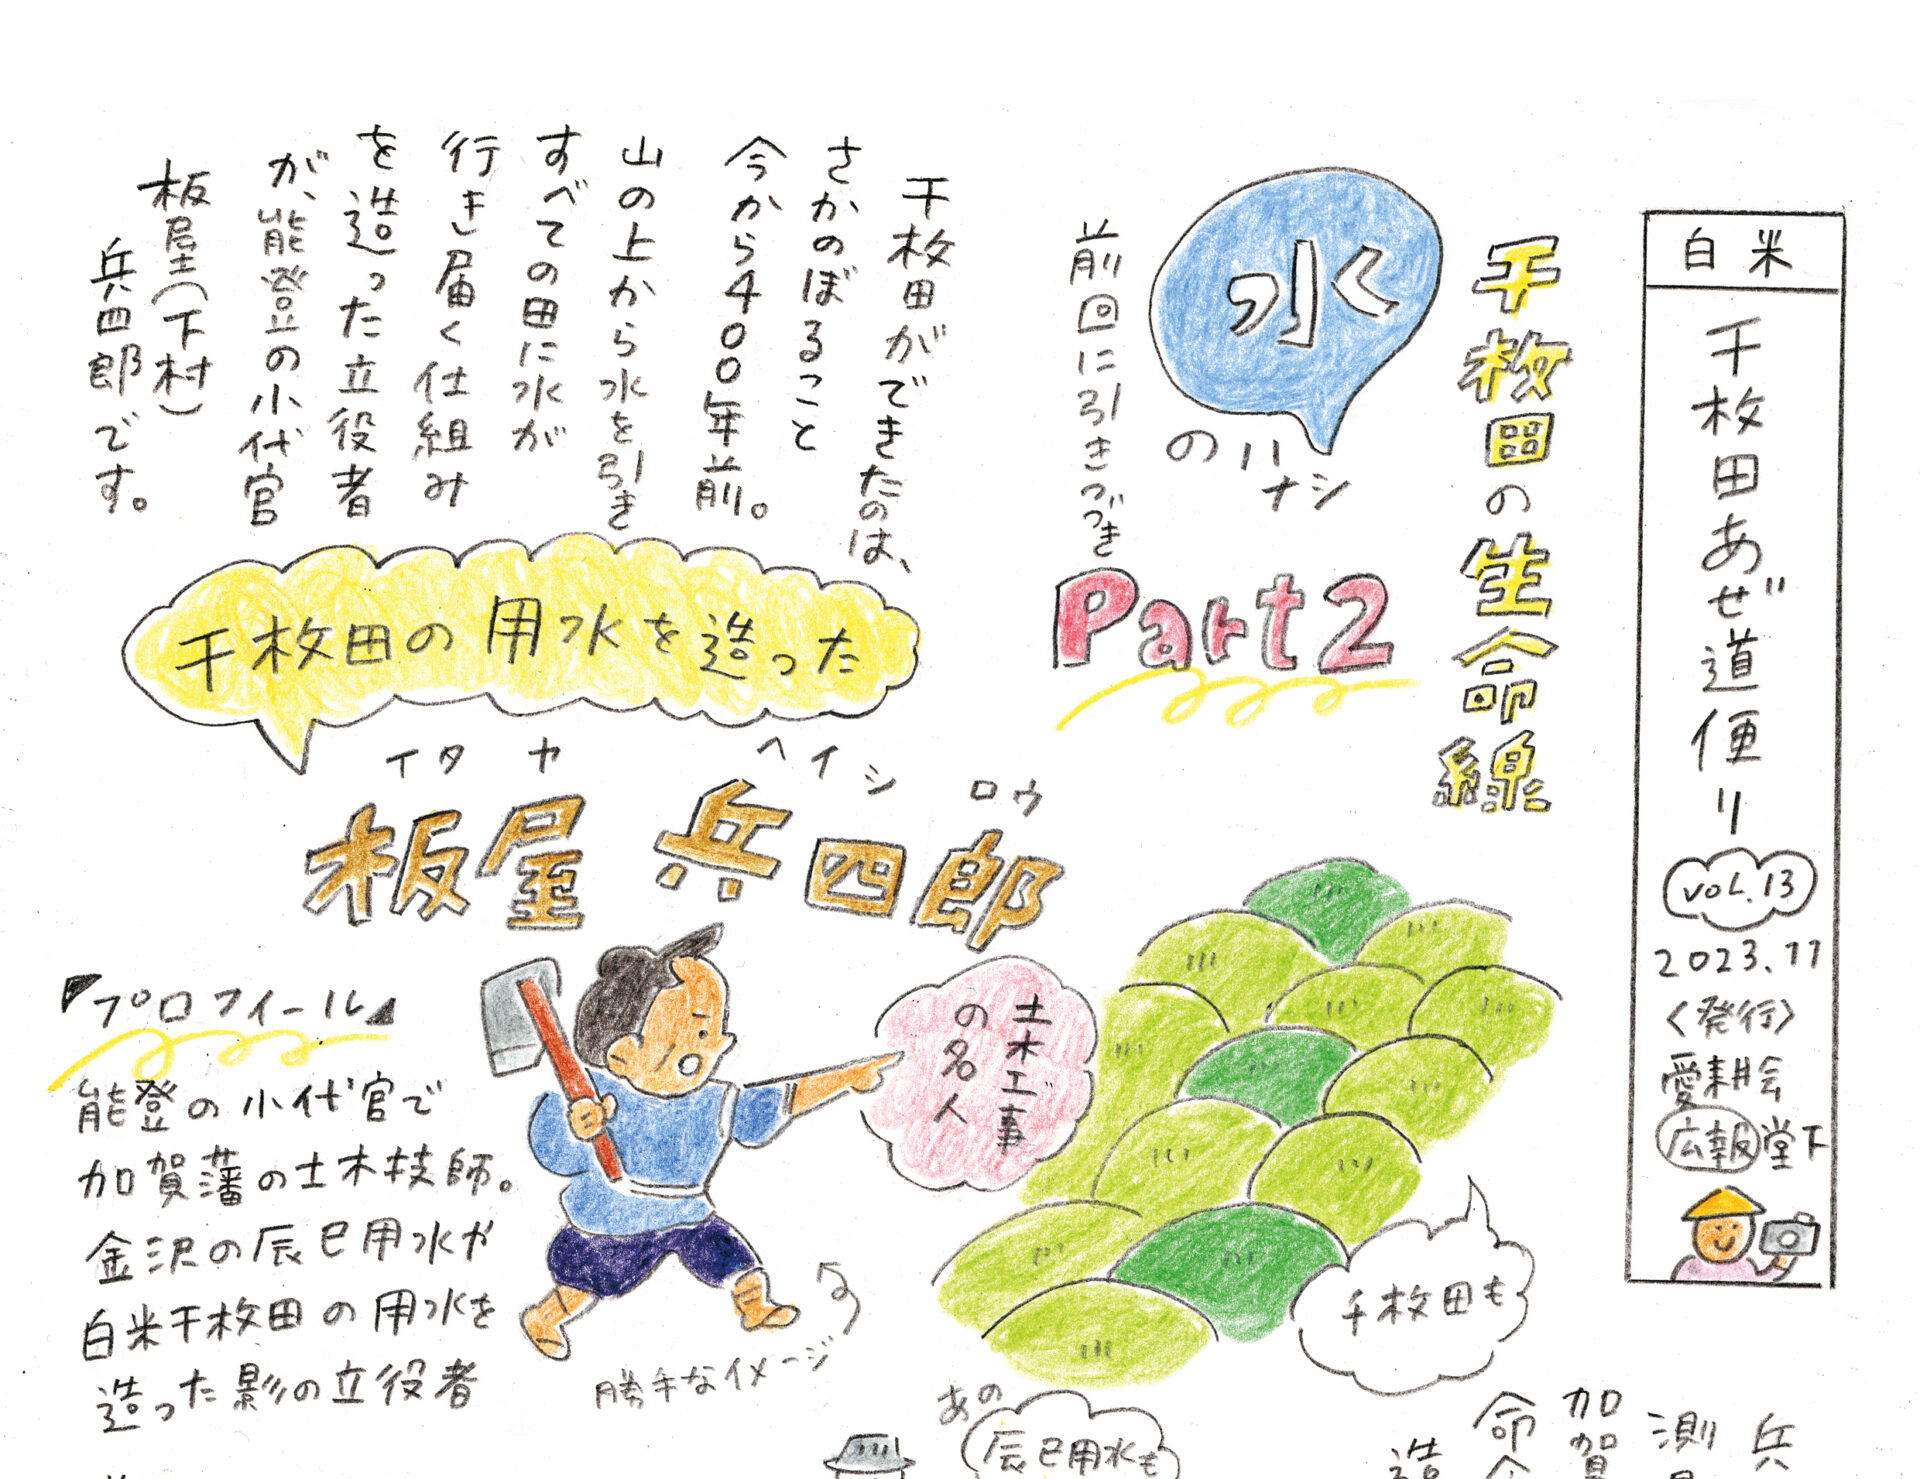 白米
千枚田あぜ道便り
vol.13
2023.11
〈発行〉
愛耕会
広報堂下
千枚田の生命線
水
のハナシ
前回に引きつづき
Part2
千枚田ができたのは、
さかのぼること
今から400年前。
山の上から水を引き
すべての田に水が
行き届く仕組み
を造った立役者
が、能登の小代官
板屋(下村)
兵四郎です。
千枚田の用水を造った
イタヤ ヘイシロウ
板屋 兵四郎
『プロフィール』
能登の小代官で
加賀藩の土木技師。
金沢の辰巳用水や
白米千枚田の用水を
造った影の立役者
土木工事
の名人
勝手なイメージ
千枚田も
あの
辰巳用水も
兵
測
加賀
命
造